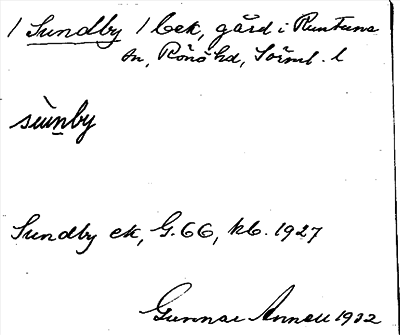 1 Sundby 1 bek, gård i Runtuna
sn, Rönö hd, Sörml. l
sùnby
Sundby ek, G.66, kb. 1927
Gunnar Annell 1932